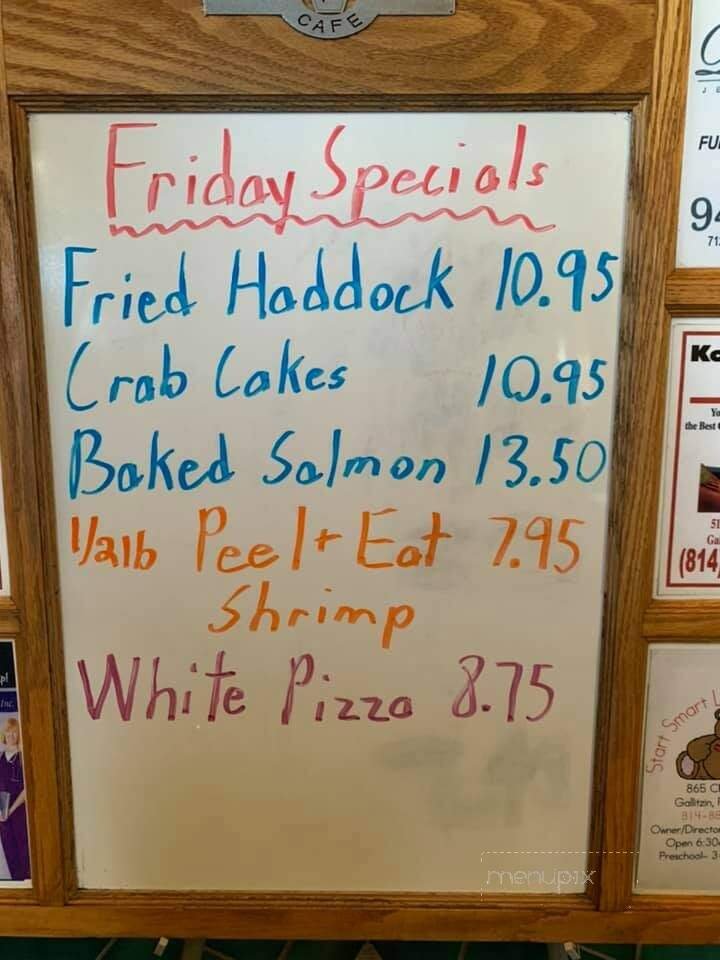 CAFE
Friday Specials
Fried Haddock 10.95
Crab Cakes 10.95
Baked Salmon 13.50
1/2lb Peel + Eat 7.95
Shrimp
White Pizza 8.75
FU
94
71
Ko
Yo
the Best
51
Ga
(814
Start Smart L
865 C
Gallitzin,
814-88
Owner/Directo
Open 6:30
Preschool- 3
p!
Inc.
menupix